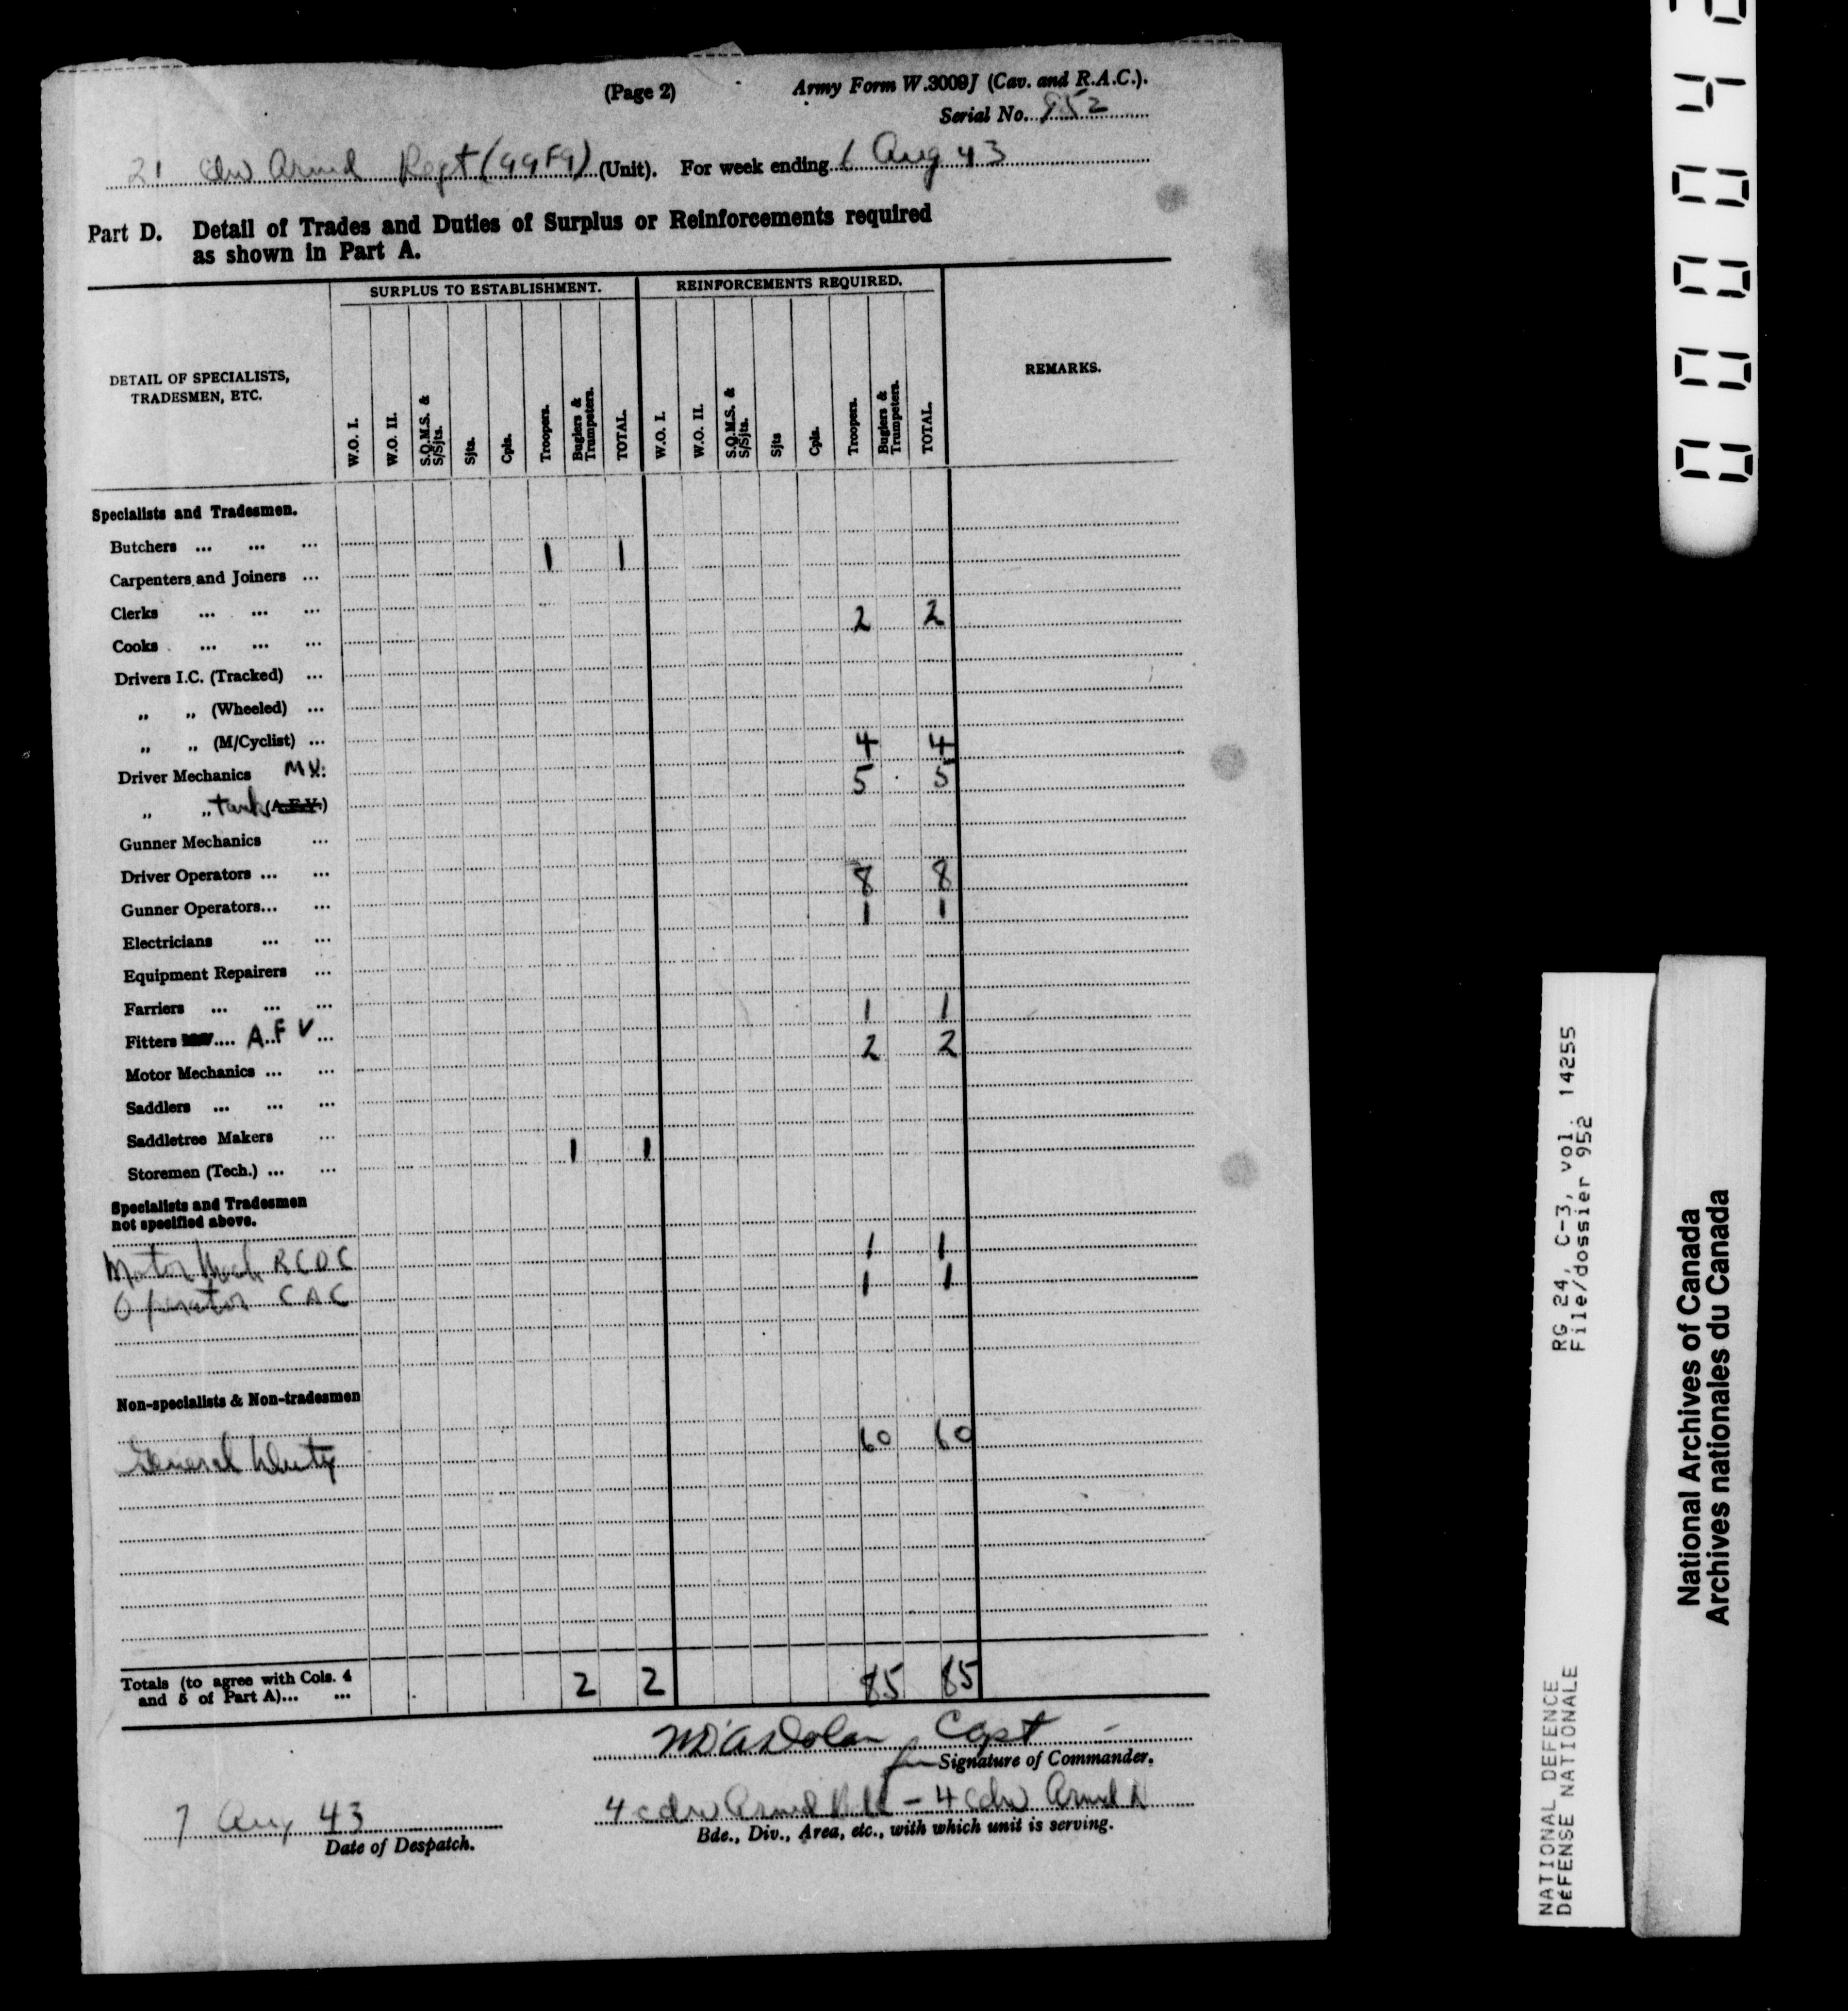 (Page 2) Army Form W.3009J (Cav. and R.A.C.).
Serial No. 952
21 Cdn Armd Regt (GGFG) (Unit). For week ending 6 Aug 43
Part D. Detail of Trades and Duties of Surplus or Reinforcements required
as shown in Part A.
DETAIL OF SPECIALISTS, TRADESMEN, ETC. SURPLUS TO ESTABLISHMENT. REINFORCEMENTS REQUIRED. REMARKS.
W.O. I. W.O. II. S.Q.M.S. & S/Sjts. Sjts. Cpls. Troopers. Buglers & Trumpeters. TOTAL. W.O. I. W.O. II. S.Q.M.S. & S/Sjts. Sjts Cpls. Troopers. Buglers & Trumpeters. TOTAL.
Specialists and Tradesmen.
Butchers ... ... ... 1 1
Carpenters and Joiners ...
Clerks ... ... ... 2 2
Cooks ... ... ...
Drivers I.C. (Tracked) ...
„ „ (Wheeled) ...
„ „ (M/Cyclist) ... 4 4
Driver Mechanics MV: 5 5
„ „ tank (A.F.V.)
Gunner Mechanics ...
Driver Operators ... ... 8 8
Gunner Operators... ... 1 1
Electricians ... ...
Equipment Repairers ...
Farriers ... ... ... 1 1
Fitters .... A.F V ... 2 2
Motor Mechanics ... ...
Saddlers ... ... ...
Saddletree Makers ... 1 1
Storemen (Tech.) ... ...
Specialists and Tradesmen
not specified above.
Motor Mech RCOC 1 1
Operator CAC 1 1
Non-specialists & Non-tradesmen
General Duty 60 60
Totals (to agree with Cols. 4
and 5 of Part A)... ... 2 2 85 85
Capt
for Signature of Commander.
7 Aug 43 4 Cdn Armd Bde – 4 Cdn Armd D
Date of Despatch. Bde., Div., Area, etc., with which unit is serving.
NATIONAL DEFENCE RG 24, C-3, vol. 14255
DéFENSE NATIONALE File/dossier 952
National Archives of Canada
Archives nationales du Canada